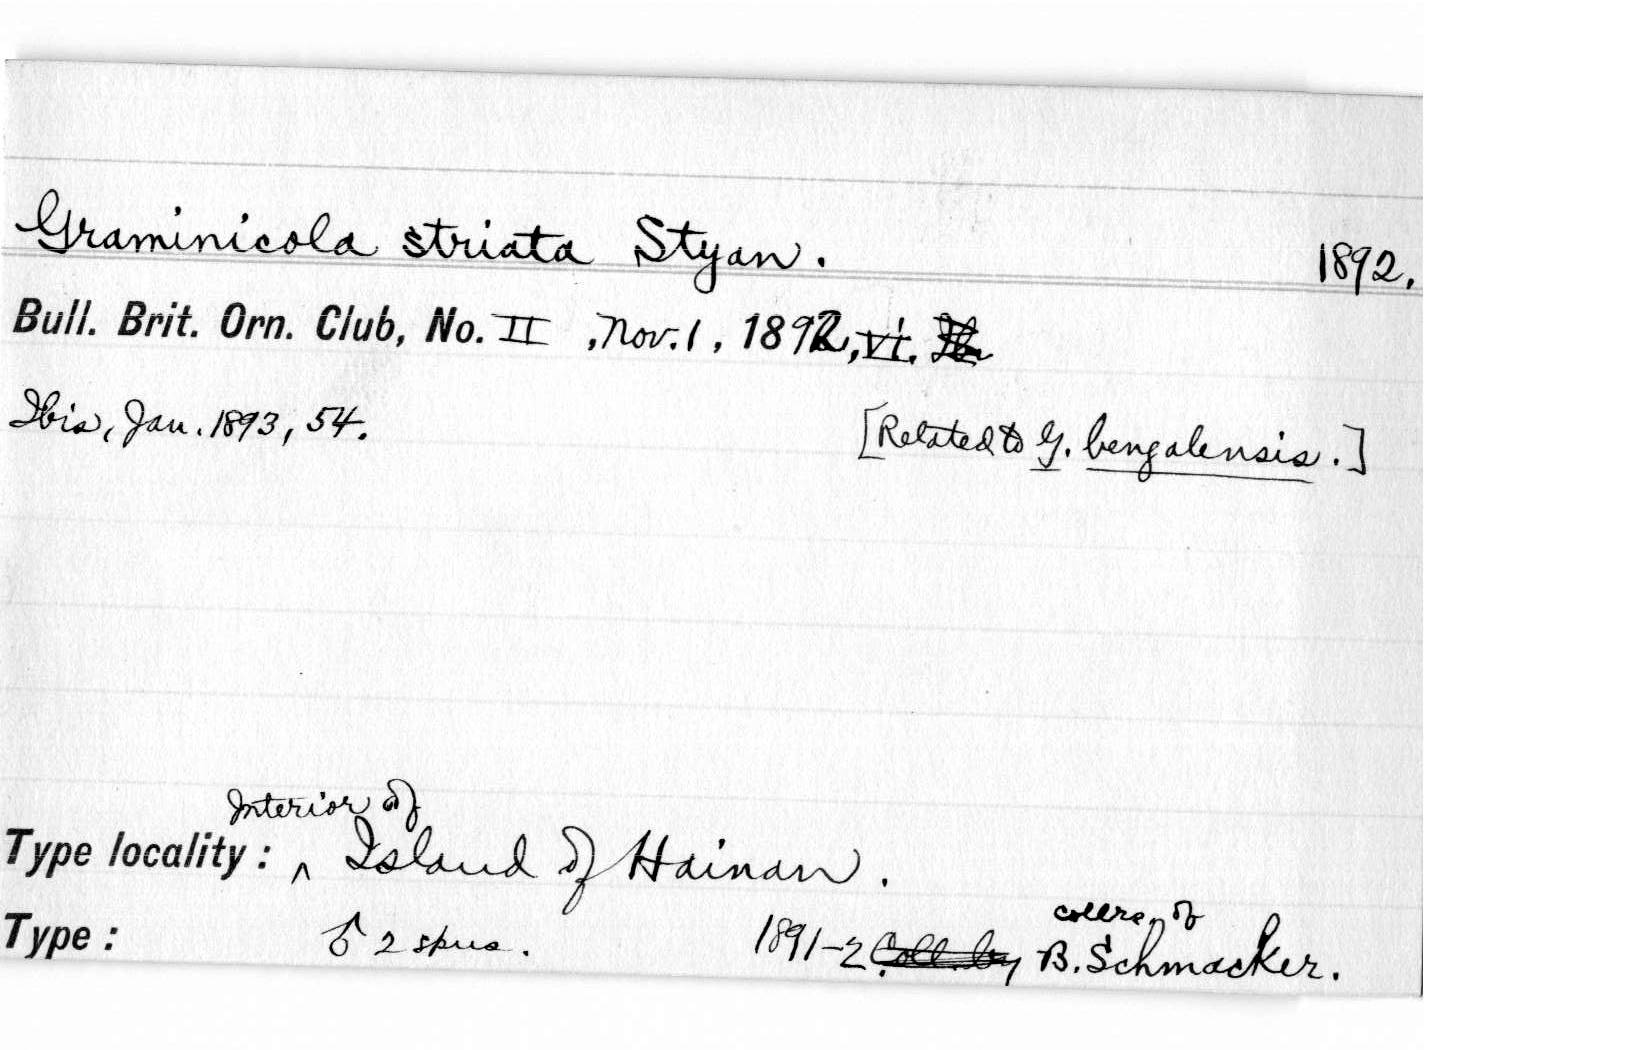 Graminicola striata Styan. 1892.
Bull. Brit. Orn. Club, No. II, Nov. 1, 1892, vi.
Ibis, Jan. 1893, 54. [Related to G. bengalensis.]
Interior of
Type locality: ^ Island of Hainan.
collrs. of
Type: ♂ 2 spms. 1891-2 Coll. by B. Schmacker.